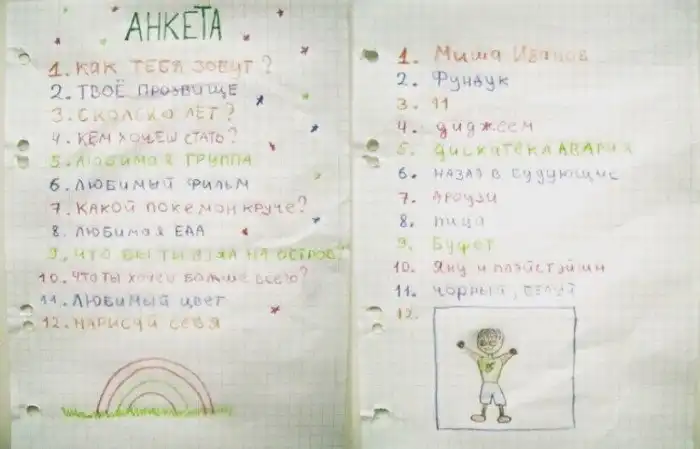 АНКЕТА
1. КАК ТЕБЯ ЗОВУТ?
2. ТВОЁ ПРОЗВИЩЕ
3. СКОЛСКО ЛЕТ?
4. КЕМ ХОЧЕШ СТАТЬ?
5. ЛЮБИМАЯ ГРУППА
6. ЛЮБИМЫЙ ФИЛЬМ
7. КАКОЙ ПОКЕМОН КРУЧЕ?
8. ЛЮБИМАЯ ЕДА
9. ЧТО БЫ ТЫ ВЗЯЛ НА ОСТРОВ?
10. ЧТО ТЫ ХОЧЕШ БОЛЬШЕ ВСЕГО?
11. ЛЮБИМЫЙ ЦВЕТ
12. НАРИСУЙ СЕБЯ
1. Миша Иванов
2. Фундук
3. 11
4. диджеем
5. ДИСКАТЕКА АВАРИЯ
6. НАЗАД В БУДУЮЩИЕ
7. ПСИДУЗИ
8. ПИЦА
9. Буфет
10. Яну и плэйстэйшн
11. чорный, белый
12.